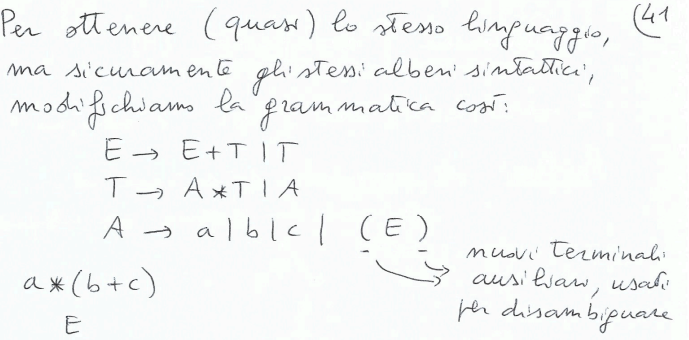 Per ottenere (quasi) lo stesso linguaggio, (41
ma sicuramente gli stessi alberi sintattici,
modifichiamo la grammatica così:
E → E+T | T
T → A*T | A
A → a | b | c | (E)
nuovi terminali
a*(b+c)
ausiliari, usati
per disambiguare
E